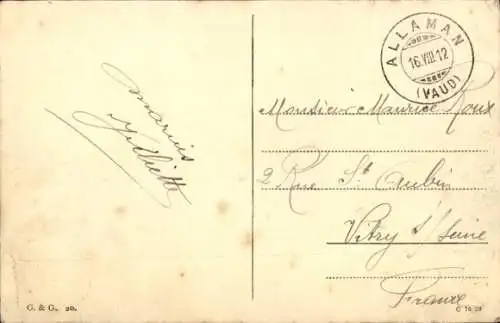 ALLAMAN
16.VIII.12
(VAUD)
Marius
Juliette
Monsieur Maurice Roux
2 Rue St Aubin
Vitry s/ Seine
France
G. & G. 20.